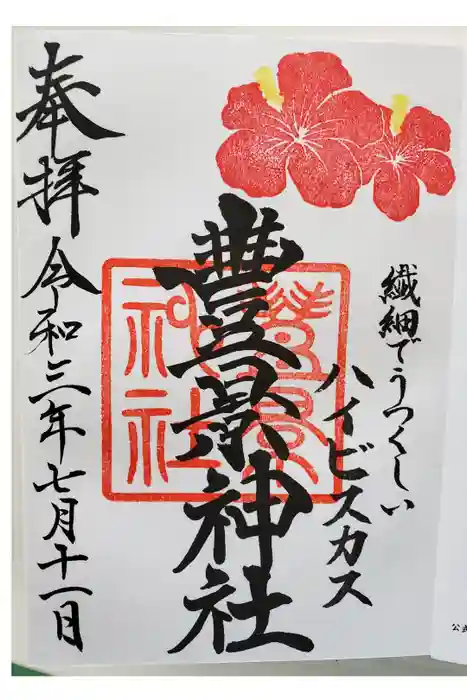 繊細でうつくしい
ハイビスカス
豊景神社
豊景神社
奉拝 令和三年七月十一日
公式